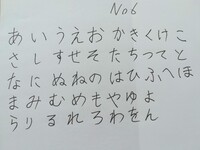 No6
あいうえおかきくけこ
さしすせそたちつてと
なにぬねのはひふへほ
まみむめもやゆよ
らりるれろわをん